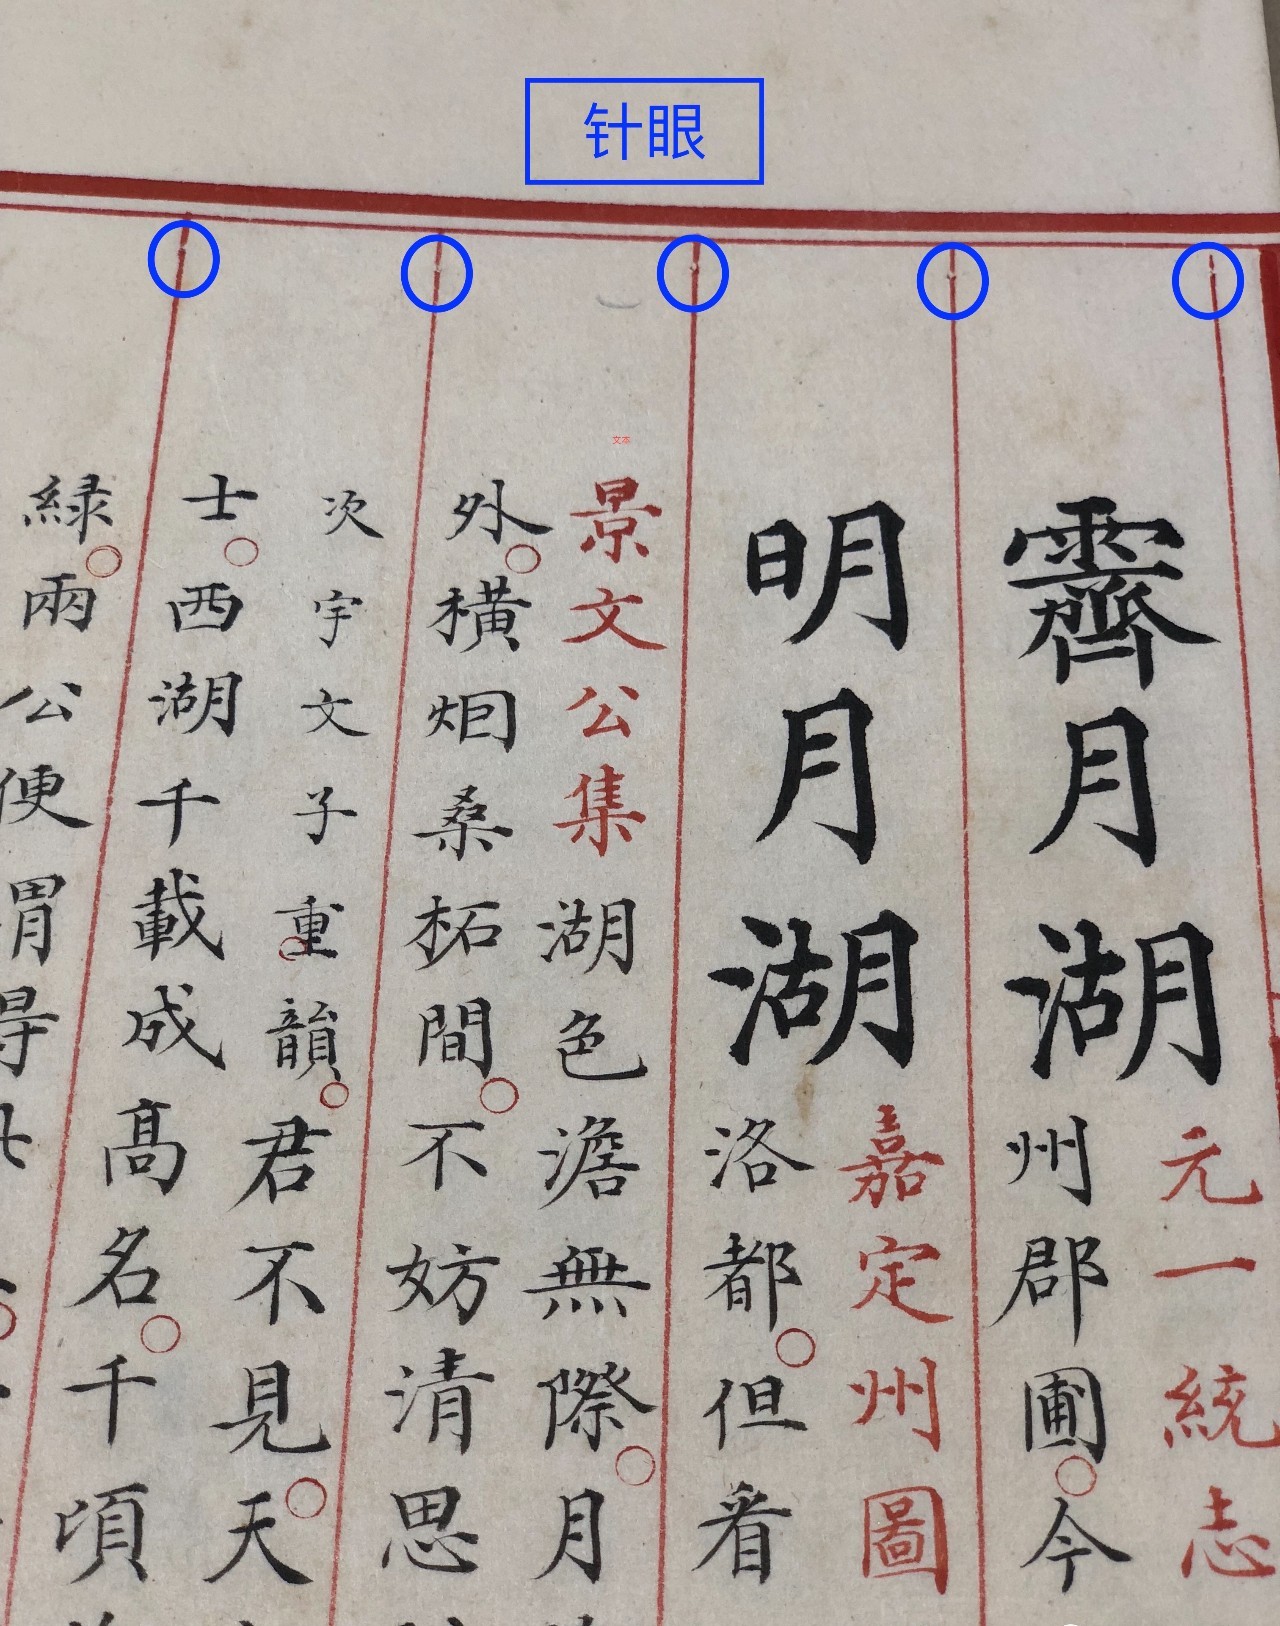 针眼
文本
霽月湖
元一統志
州郡圃今
明月湖
嘉定州圖
洛都但看
景文公集湖色澹無際月
外橫烟桑柘間不妨清思
次宇文子重韻君不見天
士西湖千載成高名千頃
緑兩公便